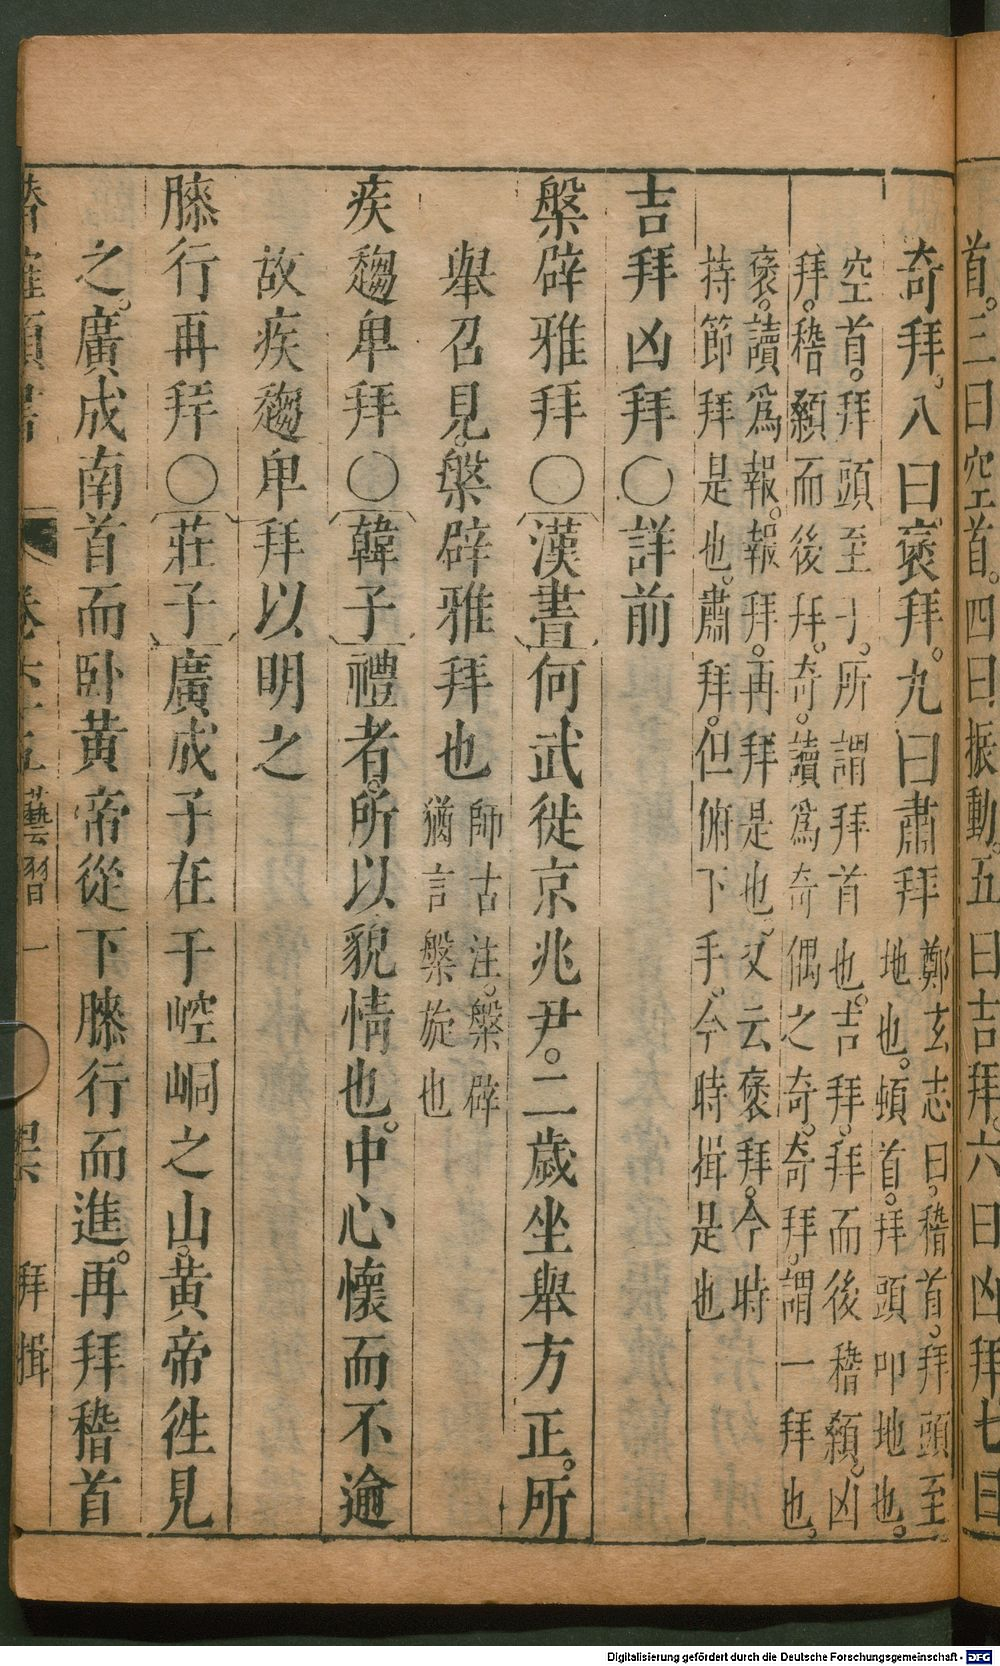 首。三曰空首。四曰振動。五曰吉拜。六曰凶拜七曰
奇拜。八曰褒拜。九曰肅拜
鄭玄志曰。稽首。拜頭至
地也。頓首。拜頭叩地也。
空首。拜頭至手。所謂拜首也。吉拜。拜而後稽顙。凶
拜。稽顙而後拜。奇。讀爲奇偶之奇。奇拜。謂一拜也。
褒。讀爲報。報拜。再拜是也。又云褒拜。今時
持節拜是也。肅拜。但俯下手。今時揖是也
吉拜凶拜○詳前
槃辟雅拜○漢書何武徙京兆尹。二歲坐舉方正。所
舉召見。槃辟雅拜也
師古注。槃辟
猶言槃旋也
疾趨卑拜○韓子禮者。所以貌情也。中心懷而不逾
故疾趨卑拜以明之
膝行再拜○莊子廣成子在于崆峒之山。黄帝徃見
之。廣成南首而卧黄帝從下膝行而進。再拜稽首
卷六十五藝習一 拜揖
Digitalisierung gefördert durch die Deutsche Forschungsgemeinschaft - DFG